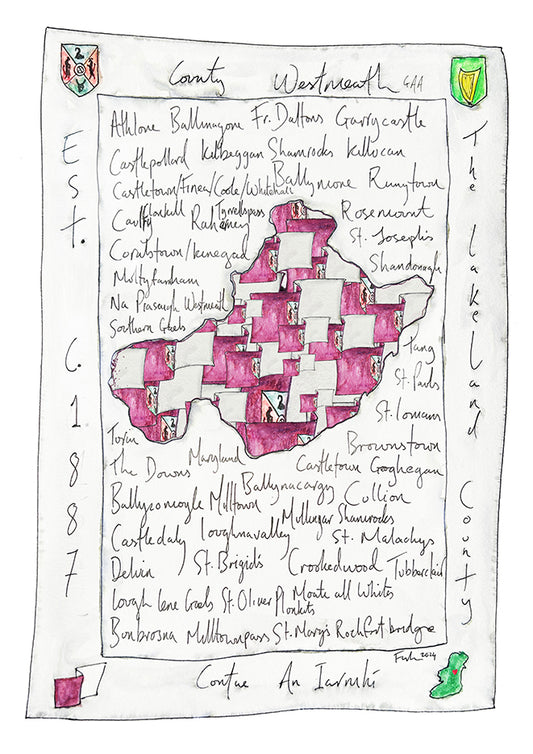 County Westmeath GAA
Est. C. 1887
The Lakeland County
Athlone Ballinagore Fr. Daltons Garrycastle
Castlepollard Kilbeggan Shamrocks Killucan
Castletown/Finea/Coole/Whitehall Ballymore Ringtown
Caulry Clonkill Raharney Tyrrellspass Rosemount
Coralstown/Kinnegad St. Josephs
Multyfarnham Shandonagh
Na Piarsaigh Westmeath
Southern Gaels
Tang
St. Pauls
St. Lomans
Torin Brownstown
The Downs Maryland Castletown Geoghegan
Ballycomoyle Milltown Ballynacargy Cullion
Castledaly Loughnavalley Mullingar Shamrocks St. Malachys
Delvin St. Brigids Crookedwood Tubberclair
Lough Lene Gaels St. Oliver Plonkits Moate all Whites
Bunbrosna Milltownpass St. Mary's Rochfortbridge
2024
Contae An Iarmhí